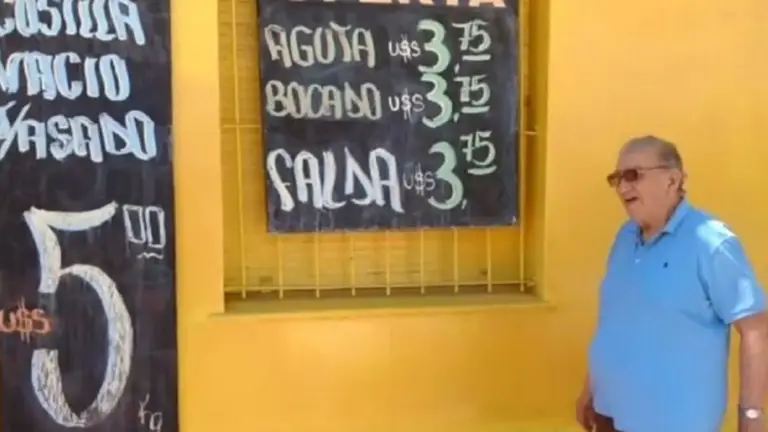 COSTILLA
VACIO
T/ASADO
U$S
5,00
Kg
OFERTA
AGUJA U$S 3,75
BOCADO U$S 3,75
FALDA U$S 3,75